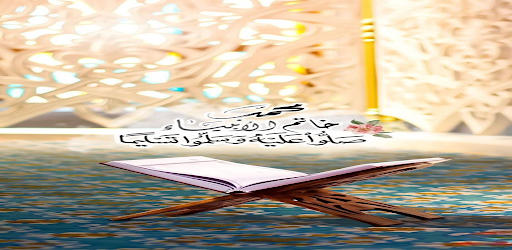 محمد
خاتم الأنبياء
صلوا عليه وسلموا تسليما